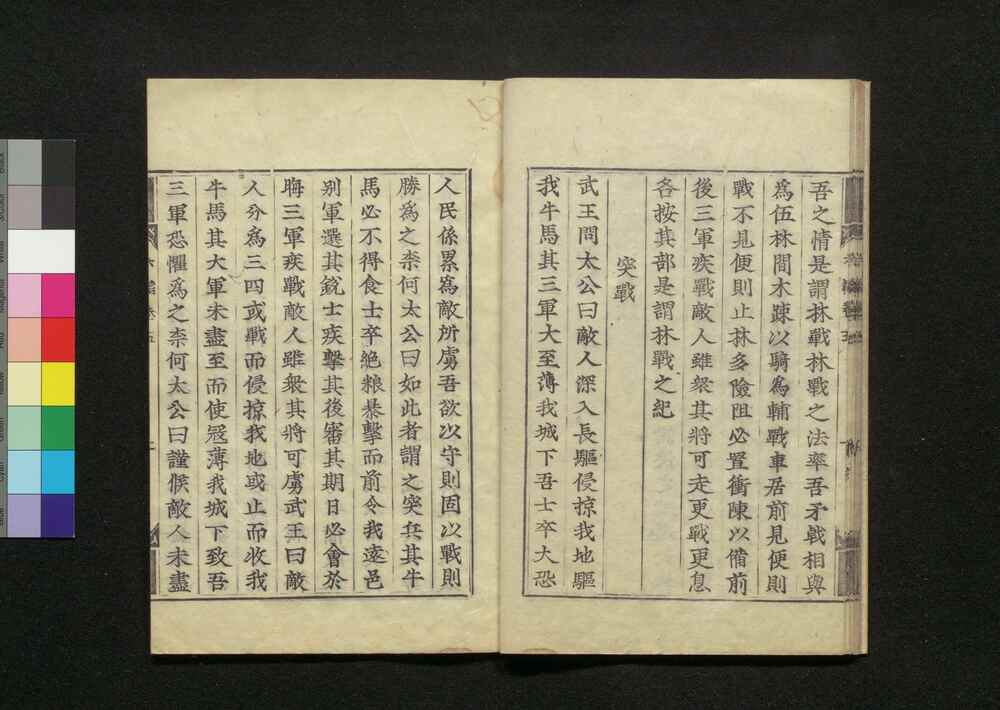 吾之情是謂林戰林戰之法率吾矛戟相與
爲伍林間木踈以騎爲輔戰車居前見便則
戰不見便則止林多險阻必置衝陳以備前
後三軍疾戰敵人雖衆其將可走更戰更息
各按其部是謂林戰之紀
突戰
武王問太公曰敵人深入長驅侵掠我地驅
我牛馬其三軍大至薄我城下吾士卒大恐
人民係累爲敵所虜吾欲以守則固以戰則
勝爲之柰何太公曰如此者謂之突兵其牛
馬必不得食士卒絶粮暴擊而前令我遠邑
别軍選其銳士疾擊其後審其期日必會於
晦三軍疾戰敵人雖衆其將可虜武王曰敵
人分爲三四或戰而侵掠我地或止而收我
牛馬其大軍未盡至而使冦薄我城下致吾
三軍恐懼爲之柰何太公曰謹候敵人未盡